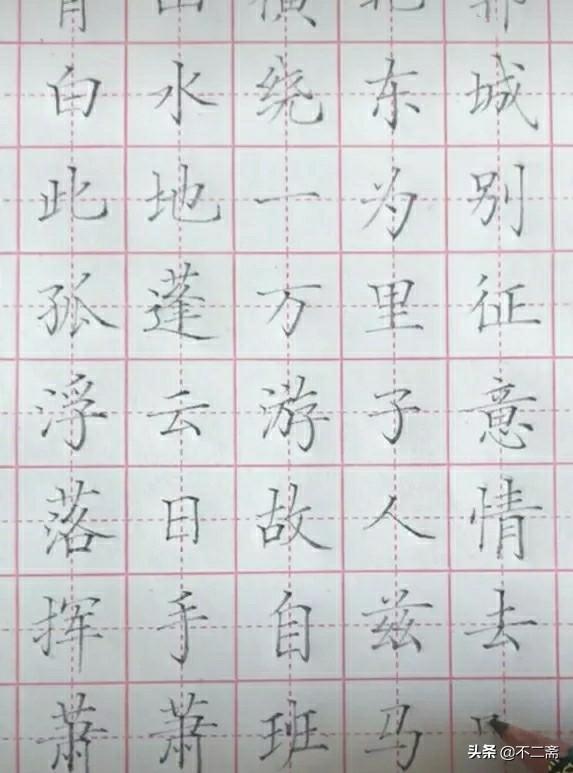 白水绕东城
此地一为别
孤蓬万里征
浮云游子意
落日故人情
挥手自兹去
萧萧班马
头条 @不二斋